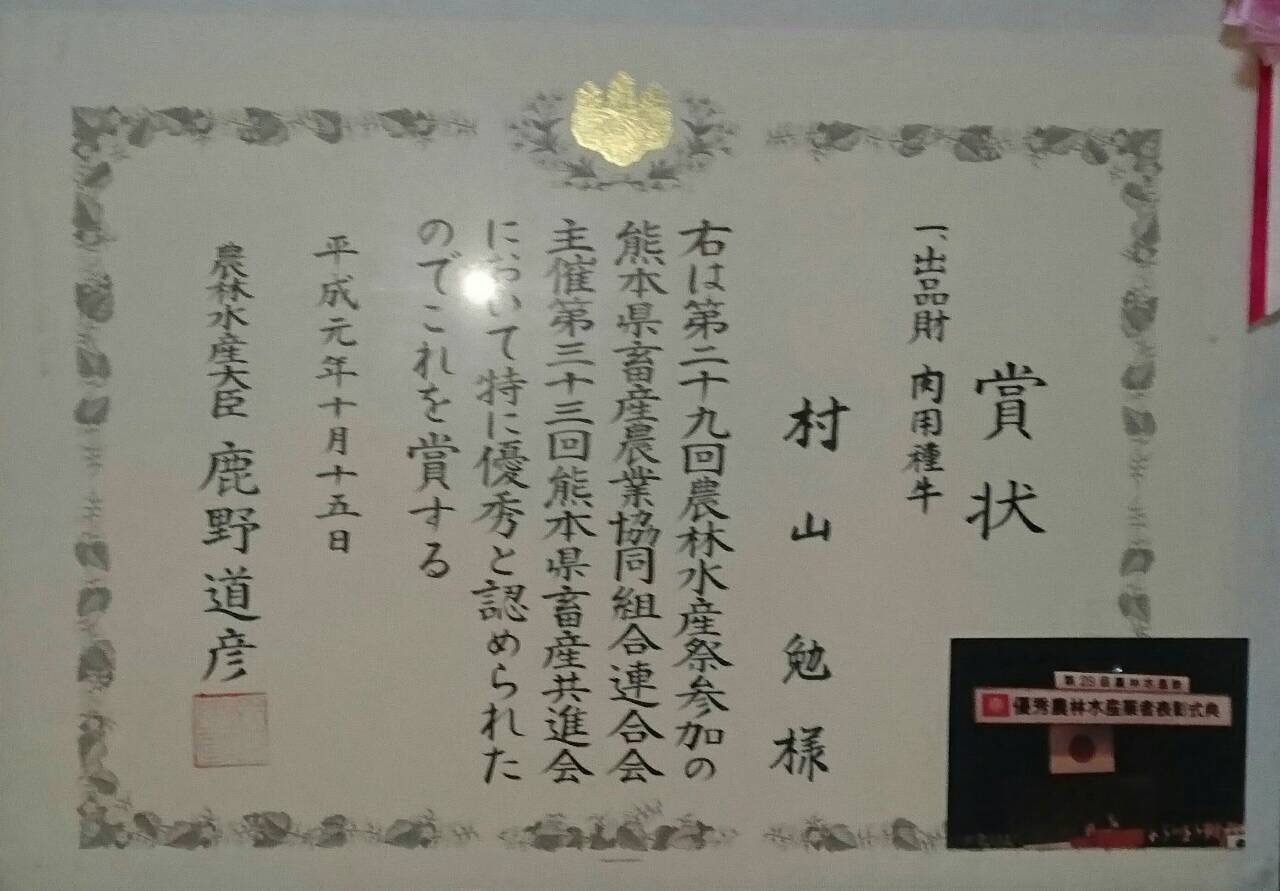 賞状
一、出品財 肉用種牛
村山 勉 様
右は第二十九回農林水産祭参加の
熊本県畜産農業協同組合連合会
主催第三十三回熊本県畜産共進会
において特に優秀と認められた
のでこれを賞する
平成元年十月十五日
農林水産大臣 鹿野道彦
第29回農林水産祭
優秀農林水産業者表彰式典